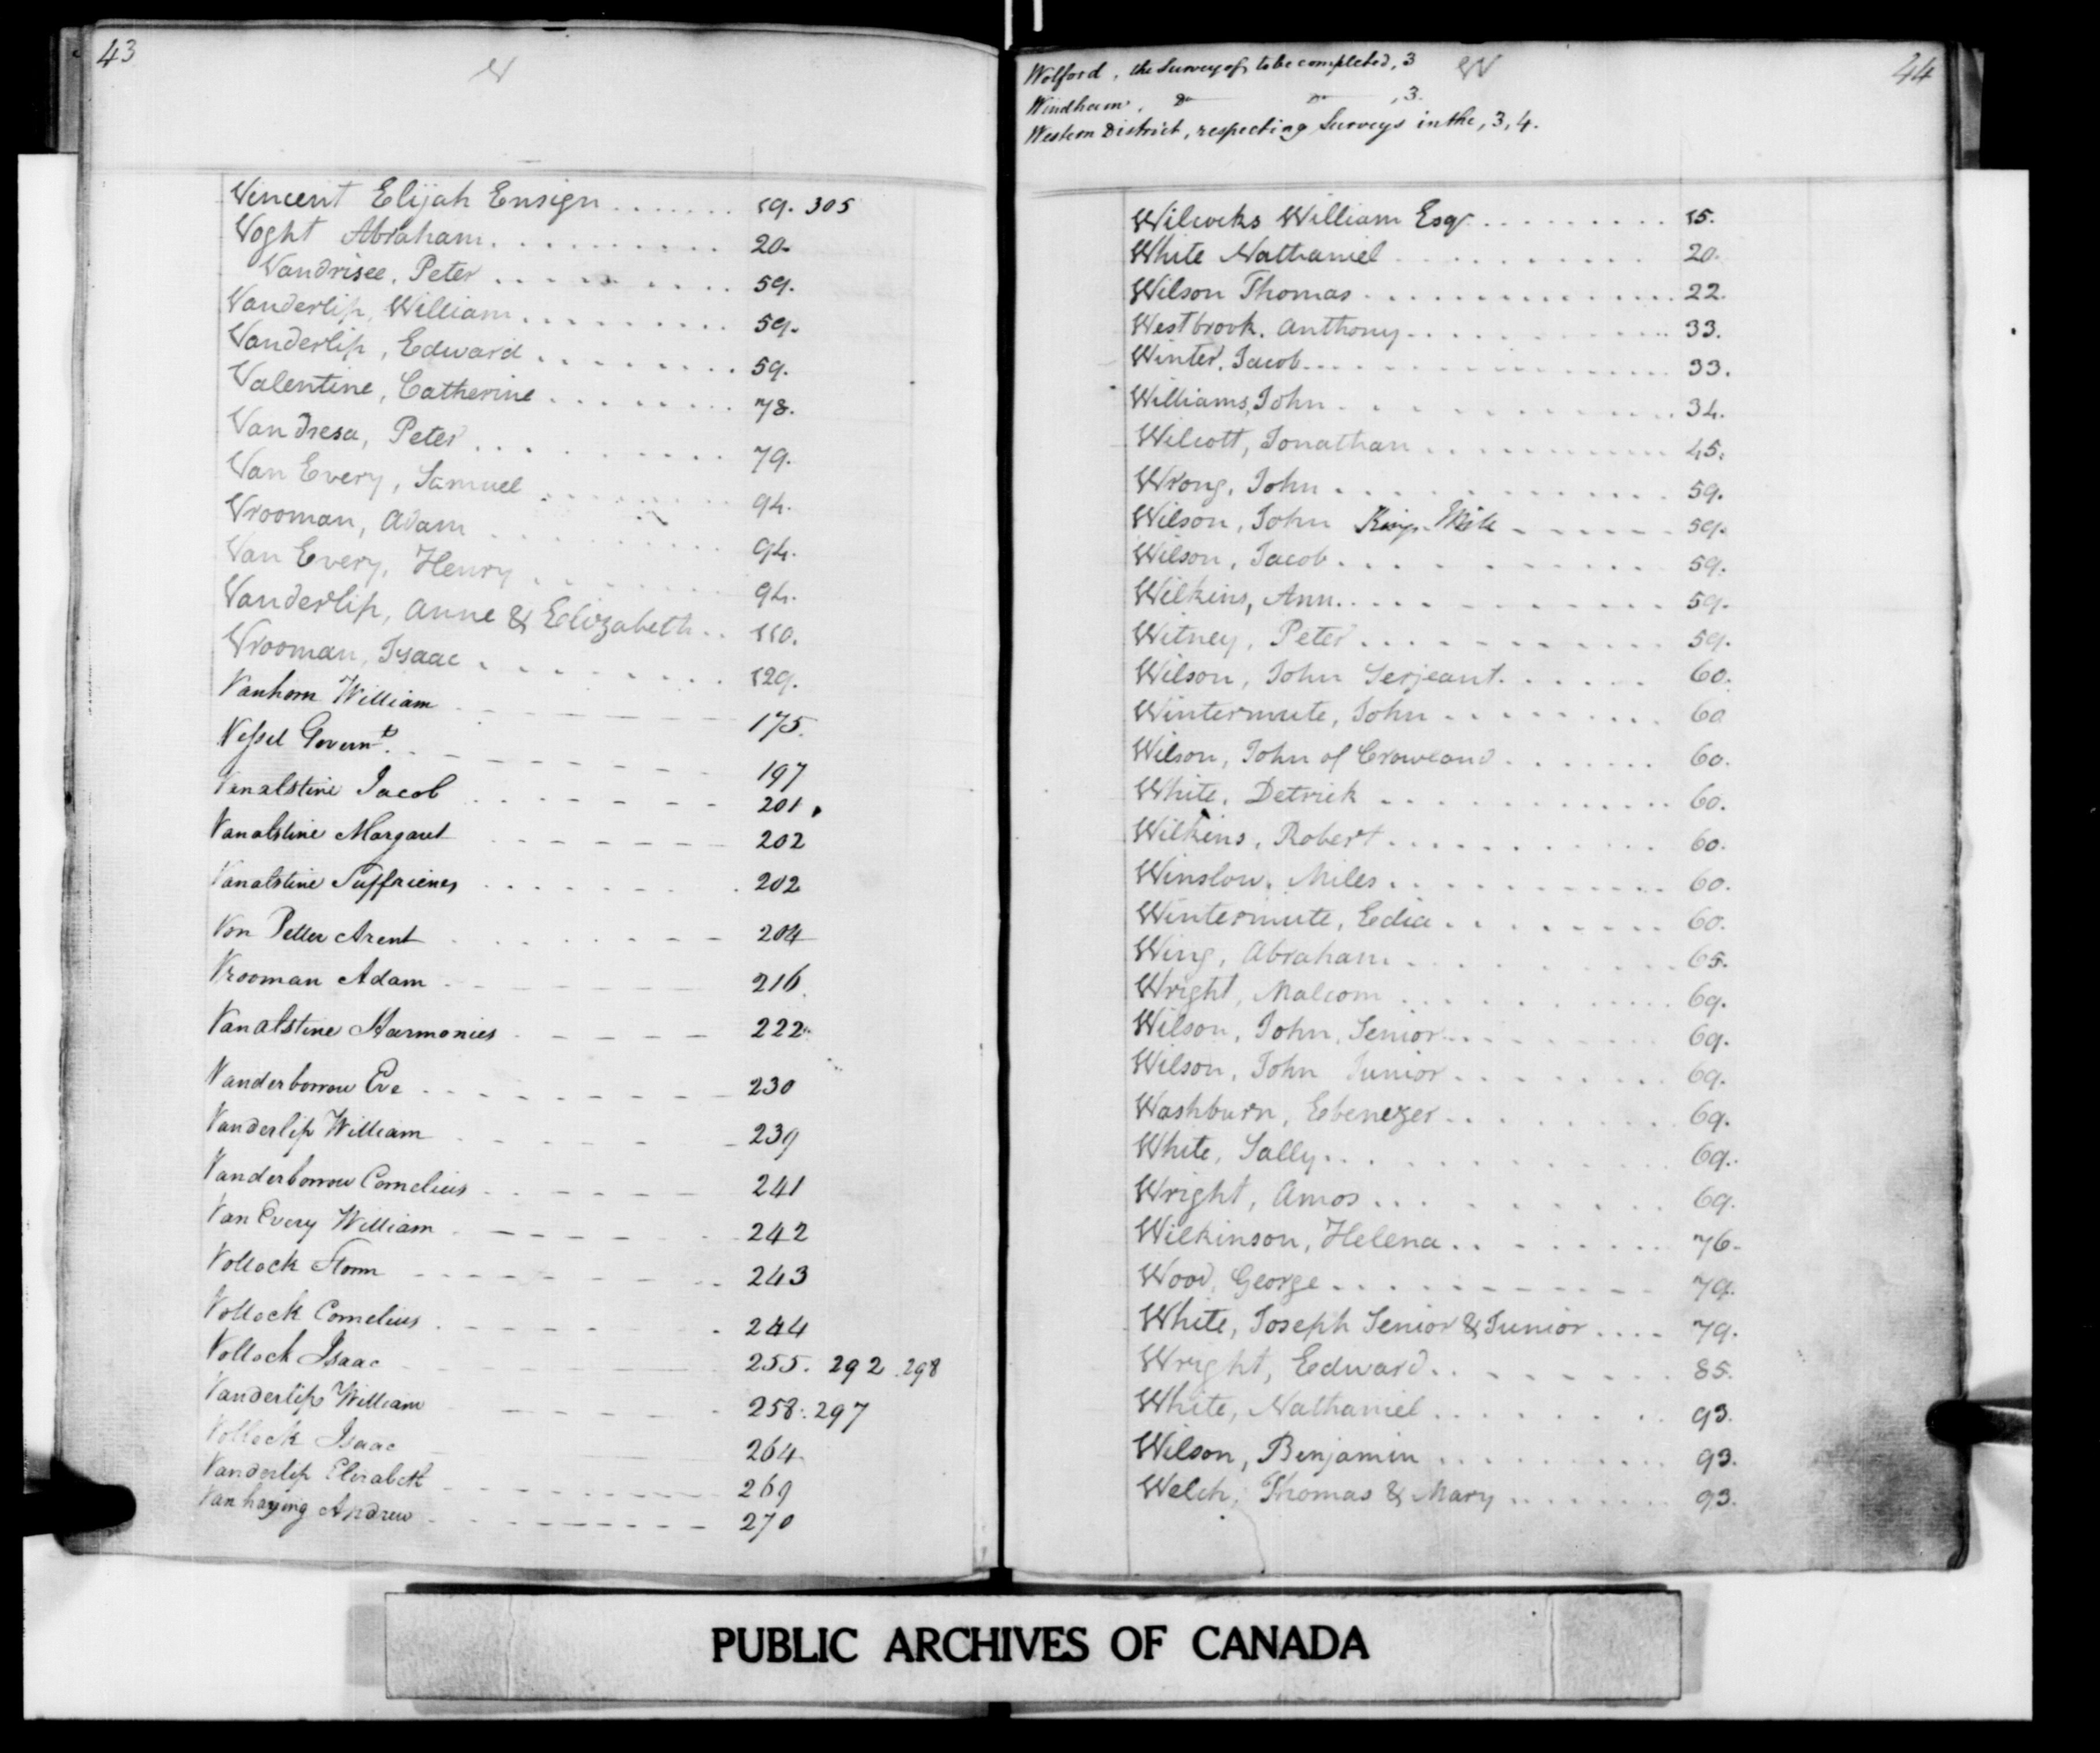 43
V
Vincent Elijah Ensign ....... 19. 305
Voght Abraham .......... 20.
Vandrisee, Peter ......... 59.
Vanderlip, William ......... 59.
Vanderlip, Edward ........ 59.
Valentine, Catherine ........ 78.
Van Dresa, Peter ......... 79.
Van Every, Samuel ........ 94.
Vrooman, Adam ......... 94.
Van Every, Henry ....... 94.
Vanderlip, Anne & Elizabeth .. 110.
Vrooman, Isaac ........ 129.
Vanhorn William - - - - - - - 175.
Vessel Governt. - - - - - - - 197
Vanalstine Jacob - - - - - - - 201.
Vanalstine Margaret - - - - - - - 202
Vanalstine Suffrienes - - - - - - - 202
Von Peller Arent - - - - - - - 204
Vrooman Adam - - - - - - - 216
Vanalstine Harmonies - - - - - 222
Vanderborrow Eve - - - - - - - 230
Vanderlip William - - - - - 239
Vanderborrow Cornelius - - - - - - 241
Van Every William - - - - - - - 242
Vollock Storm - - - - - - - - 243
Vollock Cornelius - - - - - - 244
Vollock Isaac - - - - 255. 292. 298
Vanderlip William - - - - - - 258. 297
Vollock Isaac - - - 264
Vanderlip Elizabeth - - - - - - - - 269
Vanhaying Andrew - - - - - - - - 270
Wolford, the Survey of, to be completed, 3
W
44
Windham, Do Do, 3.
Western District, respecting Surveys in the, 3, 4.
Wilcocks William Esqr ......... 15.
White Nathaniel ........... 20.
Wilson Thomas .............. 22.
Westbrook, Anthony ............ 33.
Winter, Jacob ................ 33.
Williams, John ............. 34.
Wilcott, Jonathan ........... 45.
Wrong, John ............. 59.
Wilson, John Kings Mile - - - - - 59.
Wilson, Jacob .......... 59.
Wilkins, Ann ............. 59.
Witney, Peter ........... 59.
Wilson, John Serjeant ...... 60.
Wintermute, John ......... 60
Wilson, John of Crowland ....... 60.
White, Detrick ............ 60.
Wilkins, Robert ........... 60.
Winslow, Miles ........... 60.
Wintermute, Edia ........ 60.
Wing, Abraham .......... 65.
Wright, Malcom ........... 69.
Wilson, John, Senior ......... 69.
Wilson, John Junior ........ 69.
Washburn, Ebenezer ......... 69.
White, Sally ............ 69.
Wright, Amos ........... 69.
Wilkinson, Helena ......... 76.
Wood, George ............ 79.
White, Joseph Senior & Junior .... 79.
Wright, Edward ........ 85.
White, Nathaniel ........ 93.
Wilson, Benjamin .......... 93.
Welch, Thomas & Mary ....... 93.
PUBLIC ARCHIVES OF CANADA